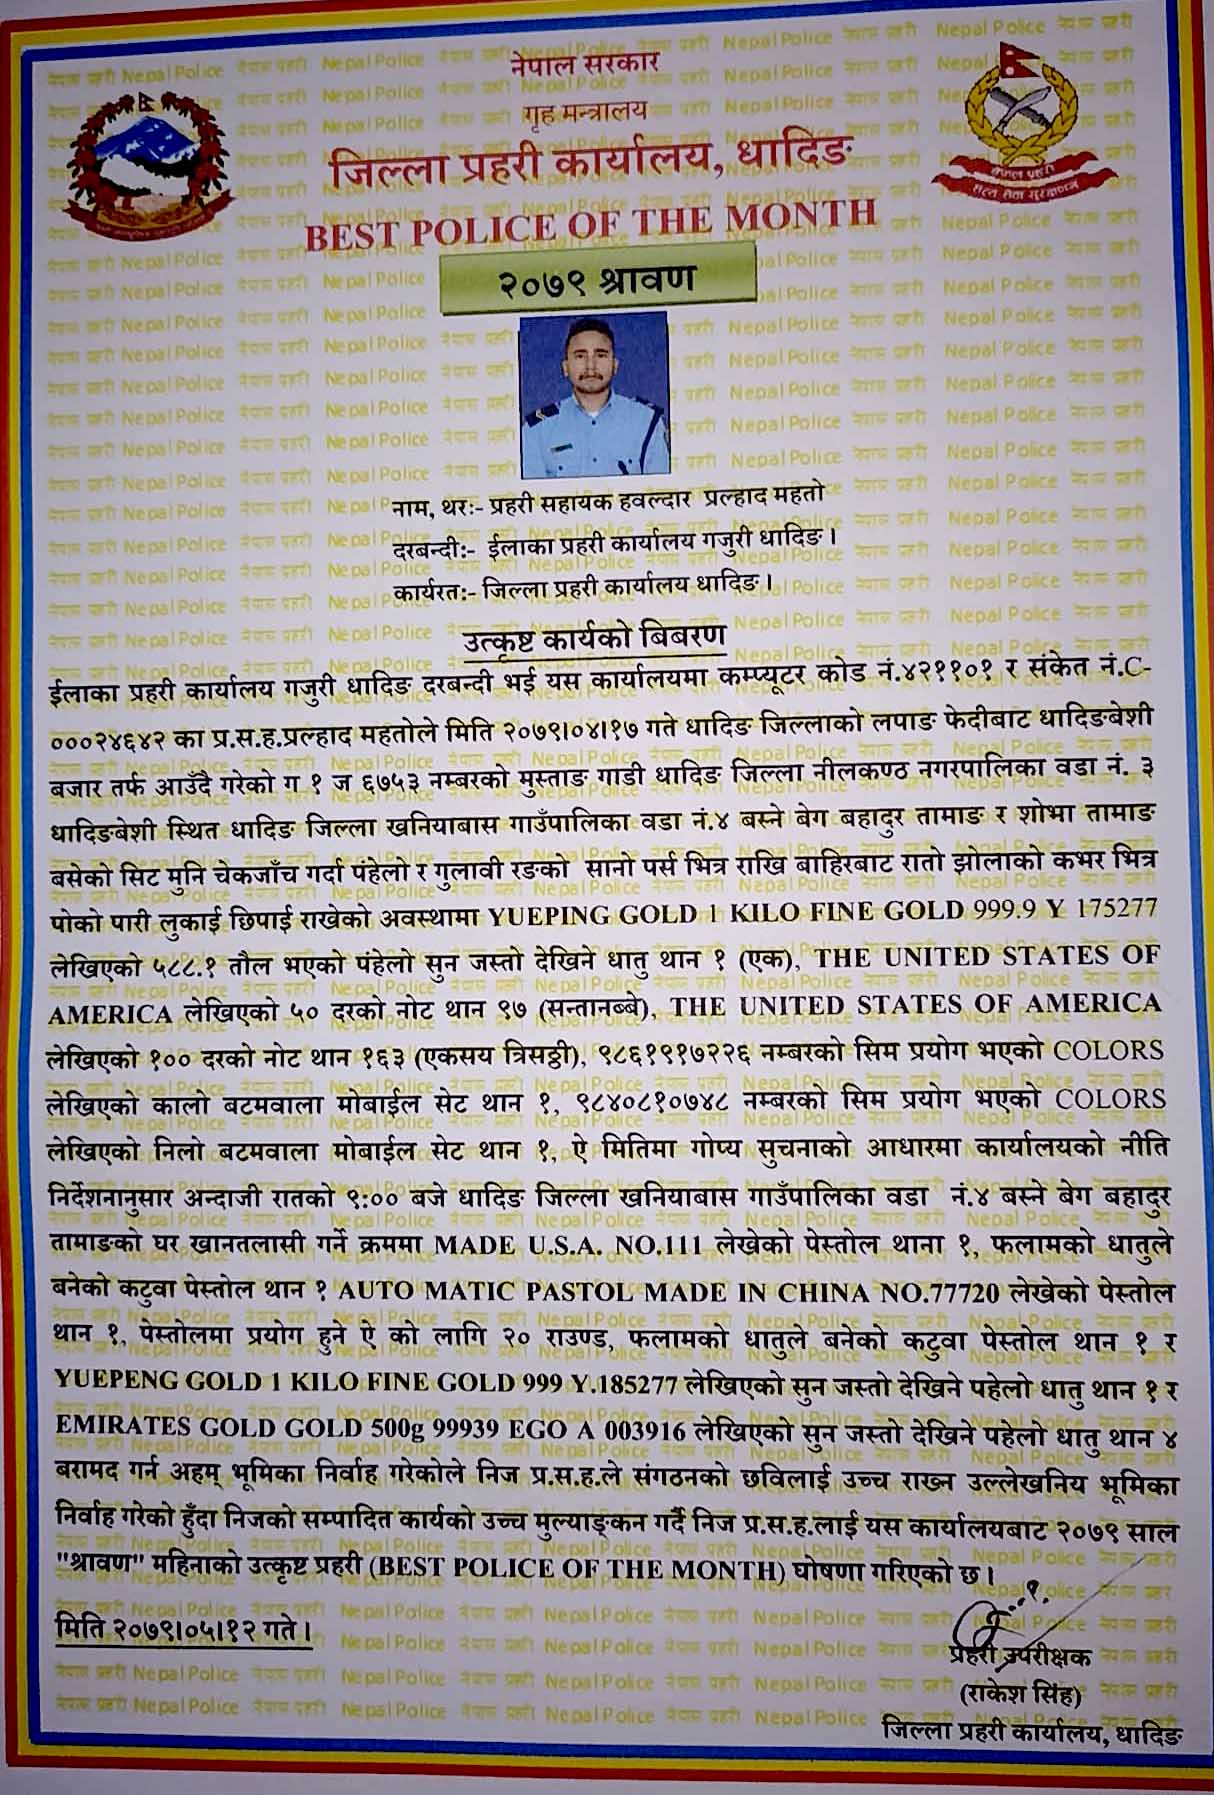 नेपाल सरकार
गृह मन्त्रालय
जिल्ला प्रहरी कार्यालय, धादिङ
BEST POLICE OF THE MONTH
२०७९ श्रावण
नाम, थरः- प्रहरी सहायक हवल्दार प्रल्हाद महतो
दरबन्दी:- ईलाका प्रहरी कार्यालय गजुरी धादिङ।
कार्यरतः- जिल्ला प्रहरी कार्यालय धादिङ।
उत्कृष्ट कार्यको बिबरण
ईलाका प्रहरी कार्यालय गजुरी धादिङ दरबन्दी भई यस कार्यालयमा कम्प्यूटर कोड नं.४२११०१ र संकेत नं.C-
०००२४६४२ का प्र.स.ह.प्रल्हाद महतोले मिति २०७९।०४।१७ गते धादिङ जिल्लाको लपाङ फेदीबाट धादिङबेशी
बजार तर्फ आउँदै गरेको ग १ ज ६७५३ नम्बरको मुस्ताङ गाडी धादिङ जिल्ला नीलकण्ठ नगरपालिका वडा नं. ३
धादिङबेशी स्थित धादिङ जिल्ला खनियाबास गाउँपालिका वडा नं.४ बस्ने बेग बहादुर तामाङ र शोभा तामाङ
बसेको सिट मुनि चेकजाँच गर्दा पंहेलो र गुलावी रङको सानो पर्स भित्र राखि बाहिरबाट रातो झोलाको कभर भित्र
पोको पारी लुकाई छिपाई राखेको अवस्थामा YUEPING GOLD 1 KILO FINE GOLD 999.9 Y 175277
लेखिएको ५८८.१ तौल भएको पंहेलो सुन जस्तो देखिने धातु थान १ (एक), THE UNITED STATES OF
AMERICA लेखिएको ५० दरको नोट थान ९७ (सन्तानब्बे), THE UNITED STATES OF AMERICA
लेखिएको १०० दरको नोट थान १६३ (एकसय त्रिसठ्ठी), ९८६१९१७२२६ नम्बरको सिम प्रयोग भएको COLORS
लेखिएको कालो बटमवाला मोबाईल सेट थान १, ९८४०८१०७४८ नम्बरको सिम प्रयोग भएको COLORS
लेखिएको निलो बटमवाला मोबाईल सेट थान १, ऐ मितिमा गोप्य सुचनाको आधारमा कार्यालयको नीति
निर्देशनानुसार अन्दाजी रातको ९:०० बजे धादिङ जिल्ला खनियाबास गाउँपालिका वडा नं.४ बस्ने बेग बहादुर
तामाङको घर खानतलासी गर्ने क्रममा MADE U.S.A. NO.111 लेखेको पेस्तोल थाना १, फलामको धातुले
बनेको कटुवा पेस्तोल थान १ AUTO MATIC PASTOL MADE IN CHINA NO.77720 लेखेको पेस्तोल
थान १, पेस्तोलमा प्रयोग हुने ऐ को लागि २० राउण्ड, फलामको धातुले बनेको कटुवा पेस्तोल थान १ र
YUEPENG GOLD 1 KILO FINE GOLD 999 Y.185277 लेखिएको सुन जस्तो देखिने पहेलो धातु थान १ र
EMIRATES GOLD GOLD 500g 99939 EGO A 003916 लेखिएको सुन जस्तो देखिने पहेलो धातु थान ४
बरामद गर्न अहम् भूमिका निर्वाह गरेकोले निज प्र.स.ह.ले संगठनको छविलाई उच्च राख्न उल्लेखनिय भूमिका
निर्वाह गरेको हुँदा निजको सम्पादित कार्यको उच्च मुल्याङ्कन गर्दै निज प्र.स.ह.लाई यस कार्यालयबाट २०७९ साल
"श्रावण" महिनाको उत्कृष्ट प्रहरी (BEST POLICE OF THE MONTH) घोषणा गरिएको छ।
मिति २०७९।०५।१२ गते।
प्रहरी उपरीक्षक
(राकेश सिंह)
जिल्ला प्रहरी कार्यालय, धादिङ